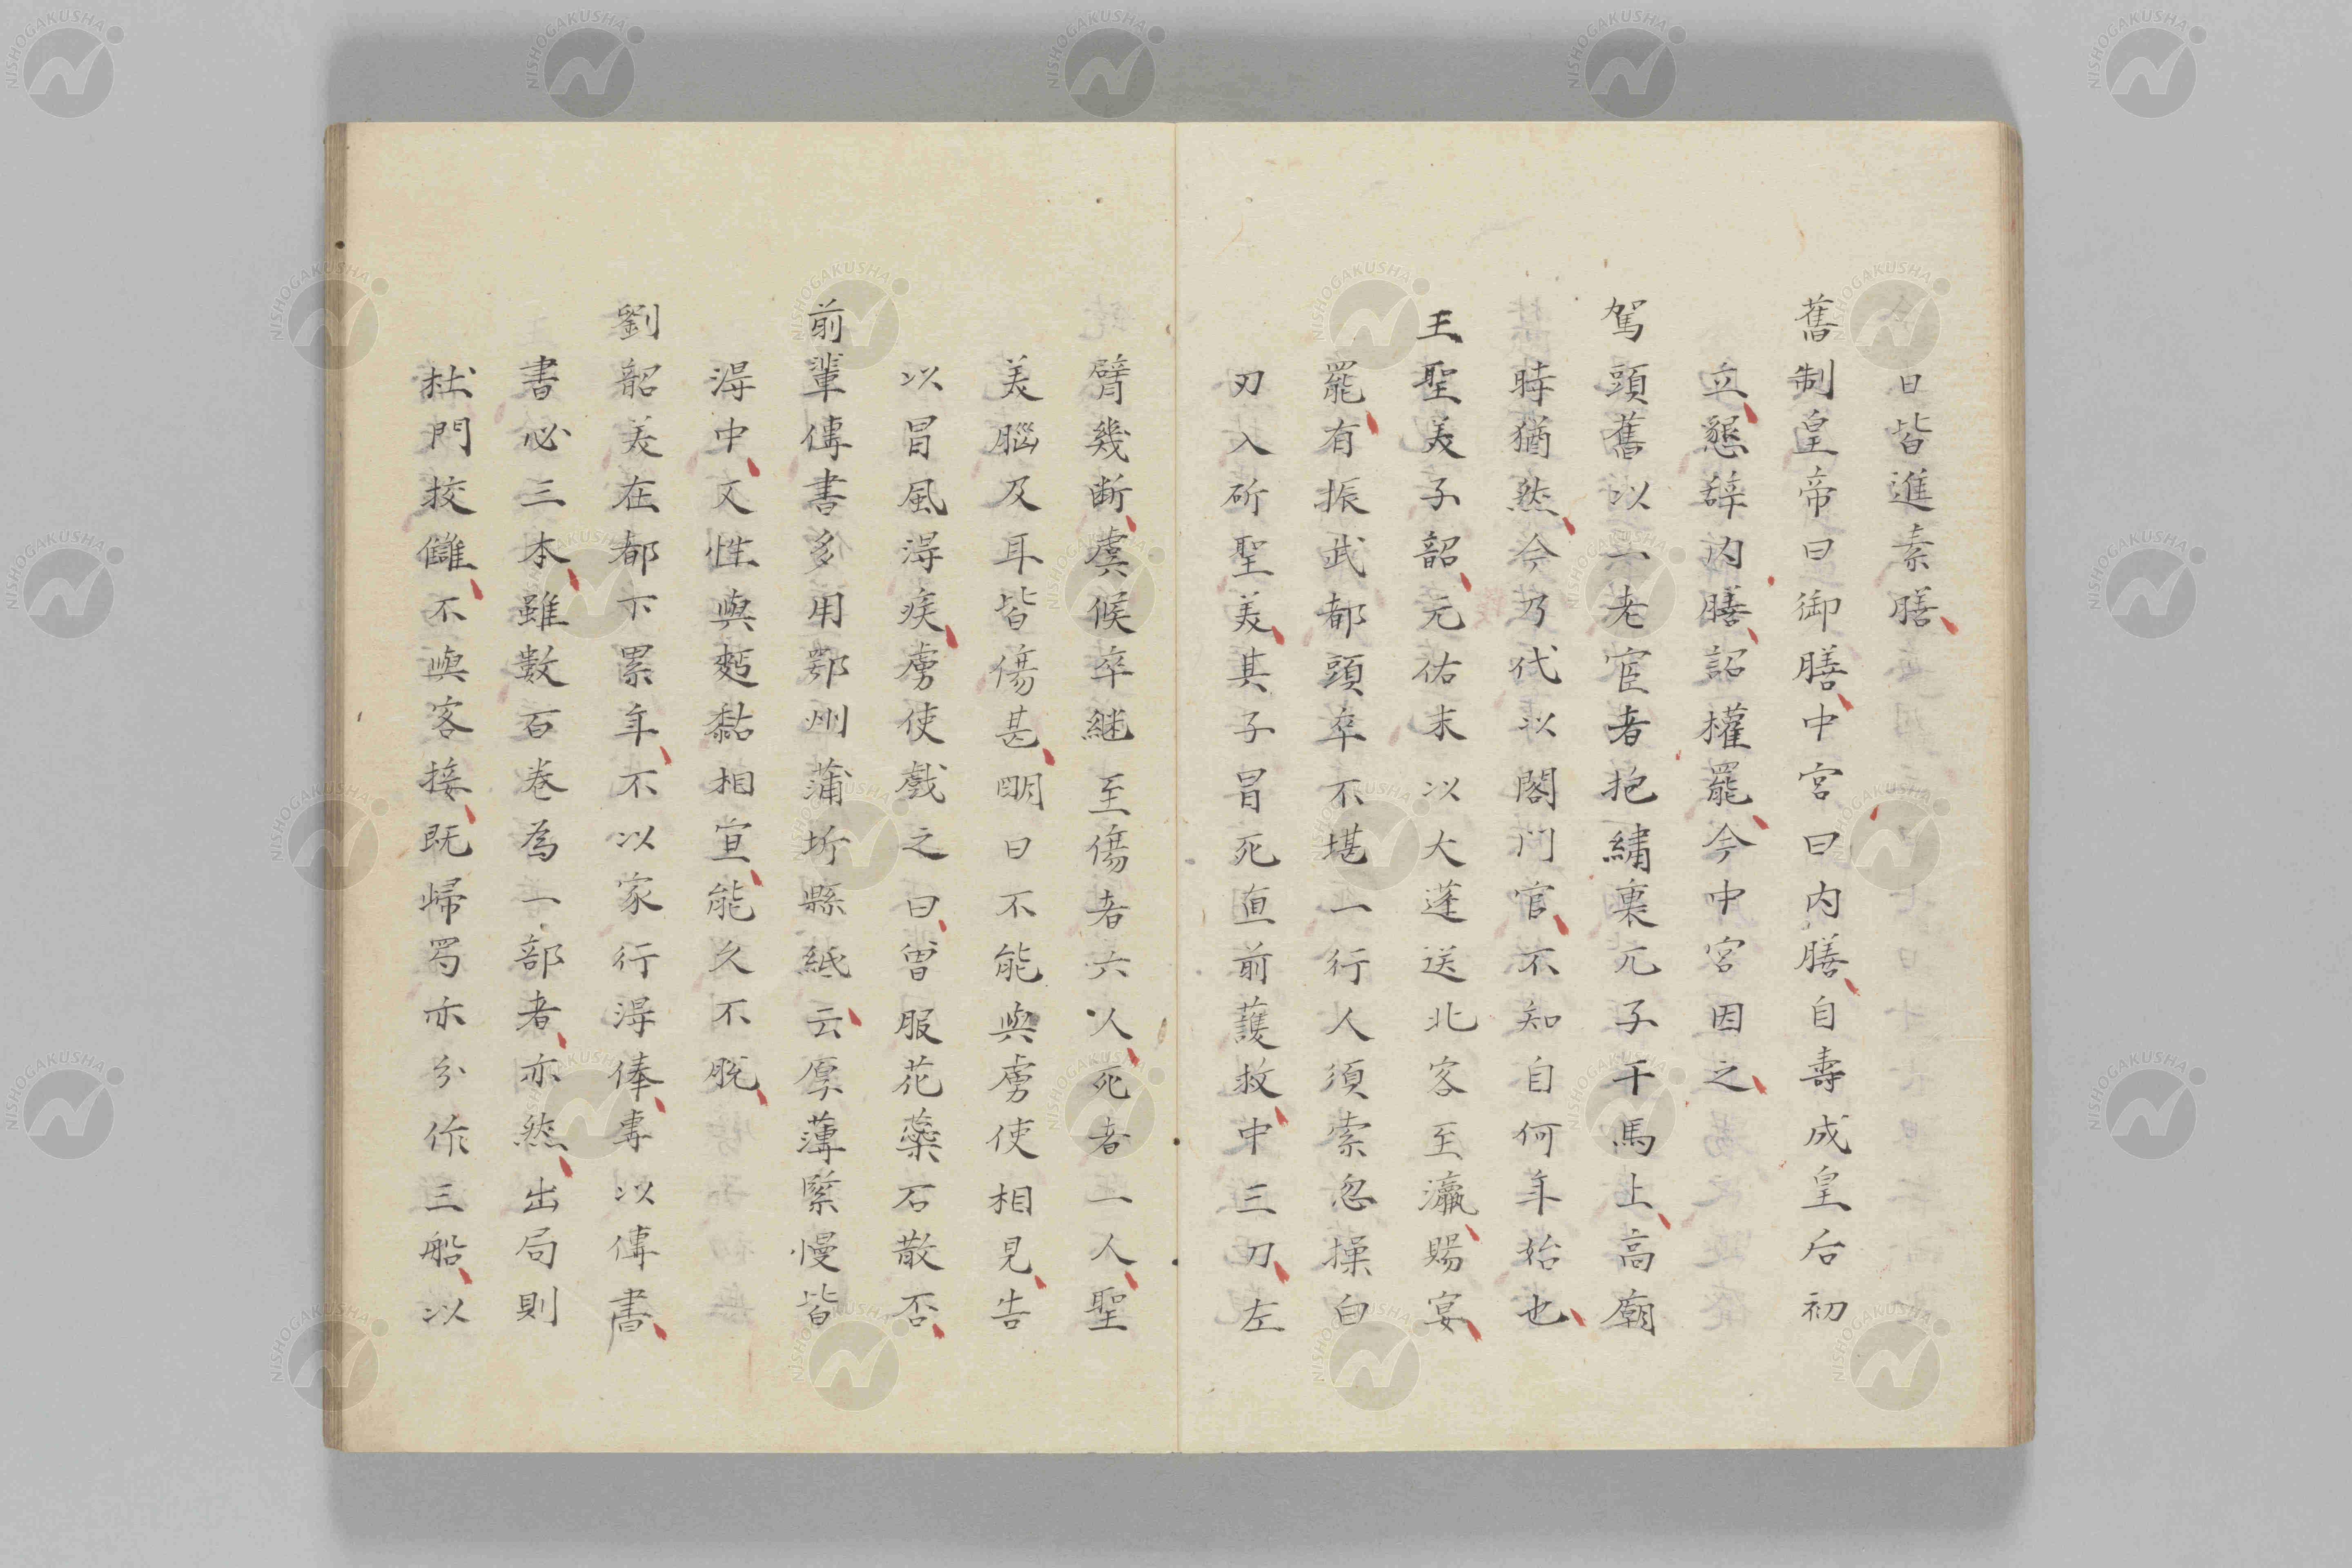 日皆進素膳
舊制皇帝曰御膳中宮曰内膳自壽成皇后初
立懇辞内膳詔權罷今中宮因之
駕頭舊以一老宦者抱繡裹兀子于馬上高廟
時猶然今乃代以閤門官不知自何年始也
王聖美子韶元佑末以大蓬送北客至瀛賜宴
罷有振武都頭卒不堪一行人須索忽操白
刃入斫聖美其子冒死直前護救中三刀左
臂幾断虞候卒継至傷者六人死者一人聖
美腦及耳皆傷甚明日不能與虜使相見告
以冒風淂疾虜使戲之曰曽服花蘂石散否
前輩傳書多用鄂州蒲圻縣紙云厚薄緊慢皆
淂中又性與麫黏相宜能久不脱
劉韶美在都下累年不以家行淂俸專以傳書
書必三本雖数百巻為一部者亦然出局則
杜門挍讎不與客接既歸蜀亦分作三船以
NISHOGAKUSHA